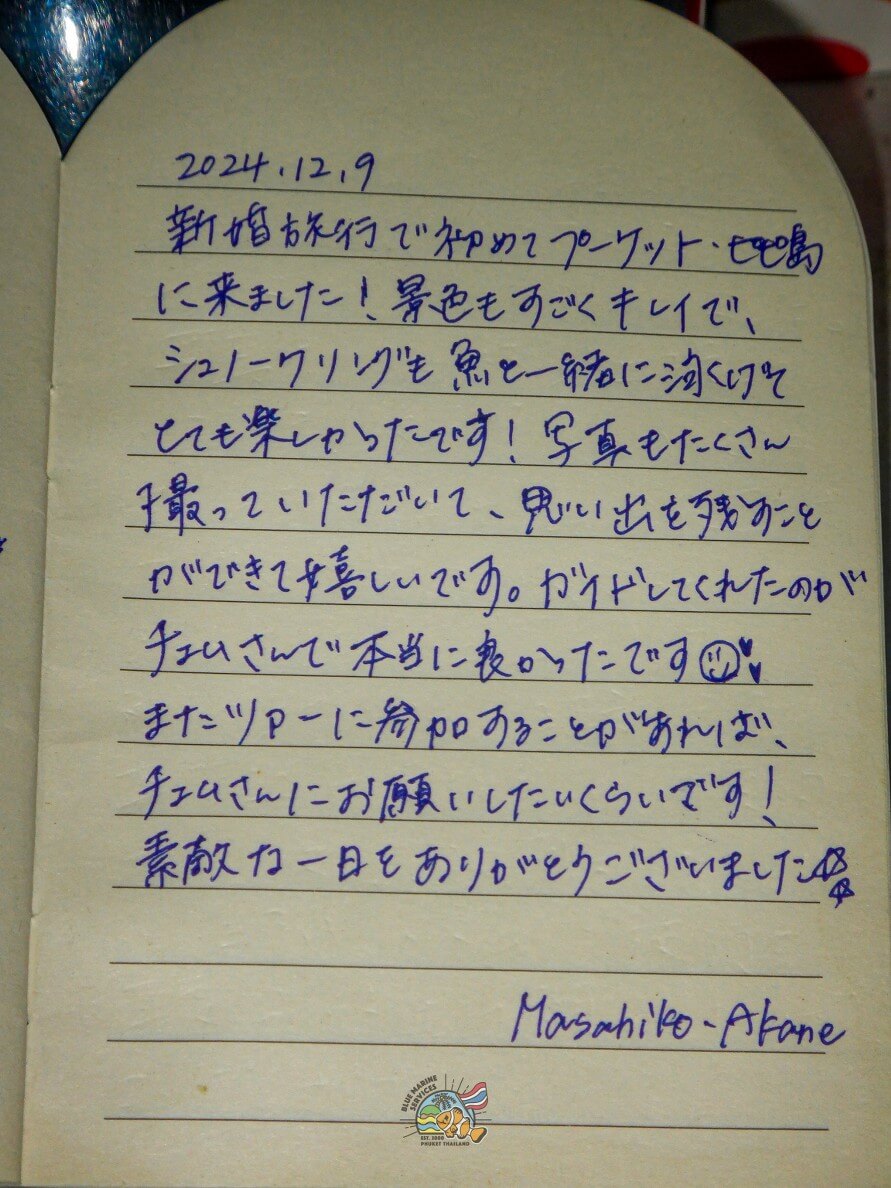 2024.12.9
新婚旅行で初めてプーケット・ピピ島
に来ました！景色もすごくキレイで、
シュノーケリングも魚と一緒に泳げて
とても楽しかったです！写真もたくさん
撮っていただいて、思い出を残すこと
ができて嬉しいです。ガイドしてくれたのが
チェムさんで本当に良かったです
またツアーに参加することがあれば、
チェムさんにお願いしたいくらいです！
素敵な一日をありがとうございました
Masahiko - Akane
BLUE MARINE SERVICES
EST. 2000
PHUKET THAILAND